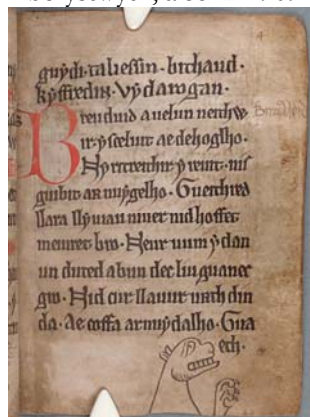 guydi. taliessin. bithaud.
kyffredin. vy darogan.
Breuduid a uelun neithw
ir. ẏ s celuit ae dehoglho.
Ny ritreithir ẏ reuit. nis
guibit ar nuẏ gelho. Gueithred
llara llẏuiau niuer nid hoffet
meiuret bro. Neur uum ẏ dan
un duted a bun dec liu guanec
gro. Nid eur llauur urth din
da. Ae coffa ar nuẏ dalho. Gua
eth.